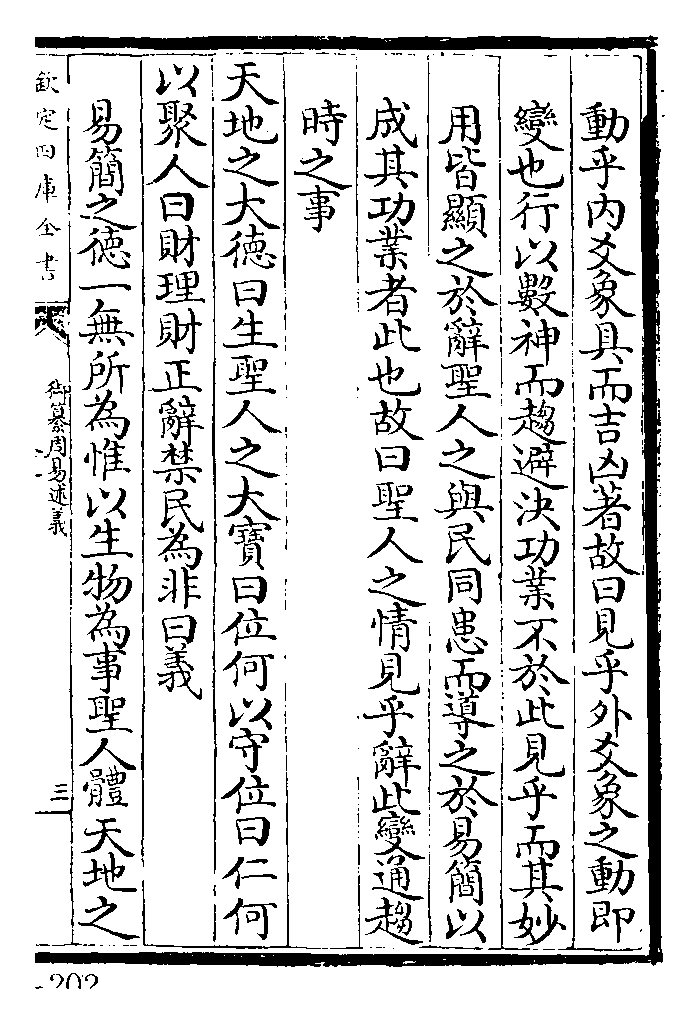 動乎内爻象具而吉凶著故曰見乎外爻象之動即
變也行以數神而趨避決功業不於此見乎而其妙
用皆顯之於辭聖人之與民同患而導之於易簡以
成其功業者此也故曰聖人之情見乎辭此變通趨
時之事
天地之大德曰生聖人之大寶曰位何以守位曰仁何
以聚人曰財理財正辭禁民為非曰義
易簡之德一無所為惟以生物為事聖人體天地之
欽定四庫全書
御纂周易述義
三
-202